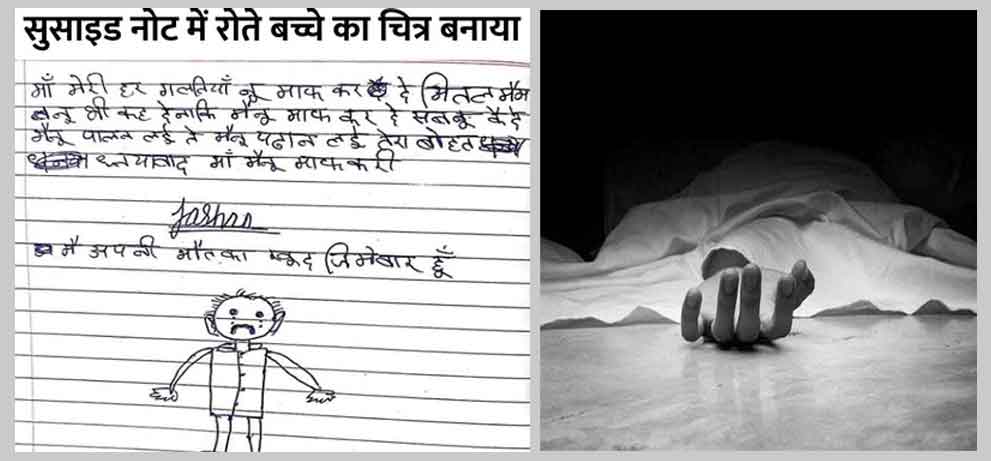 सुसाइड नोट में रोते बच्चे का चित्र बनाया
माँ मेरी हर गलतियाँ नू माफ कर दे मितल मैम
नू भी कह देना कि मैनू माफ कर दे सबनू कैदे
मैनू पालन लई ते मैनू पढ़ान लई तेरा बोहत
धन्यावाद माँ मैनू माफ करी
Jashan
मै अपनी मौत का खुद जिमेबार हूँ